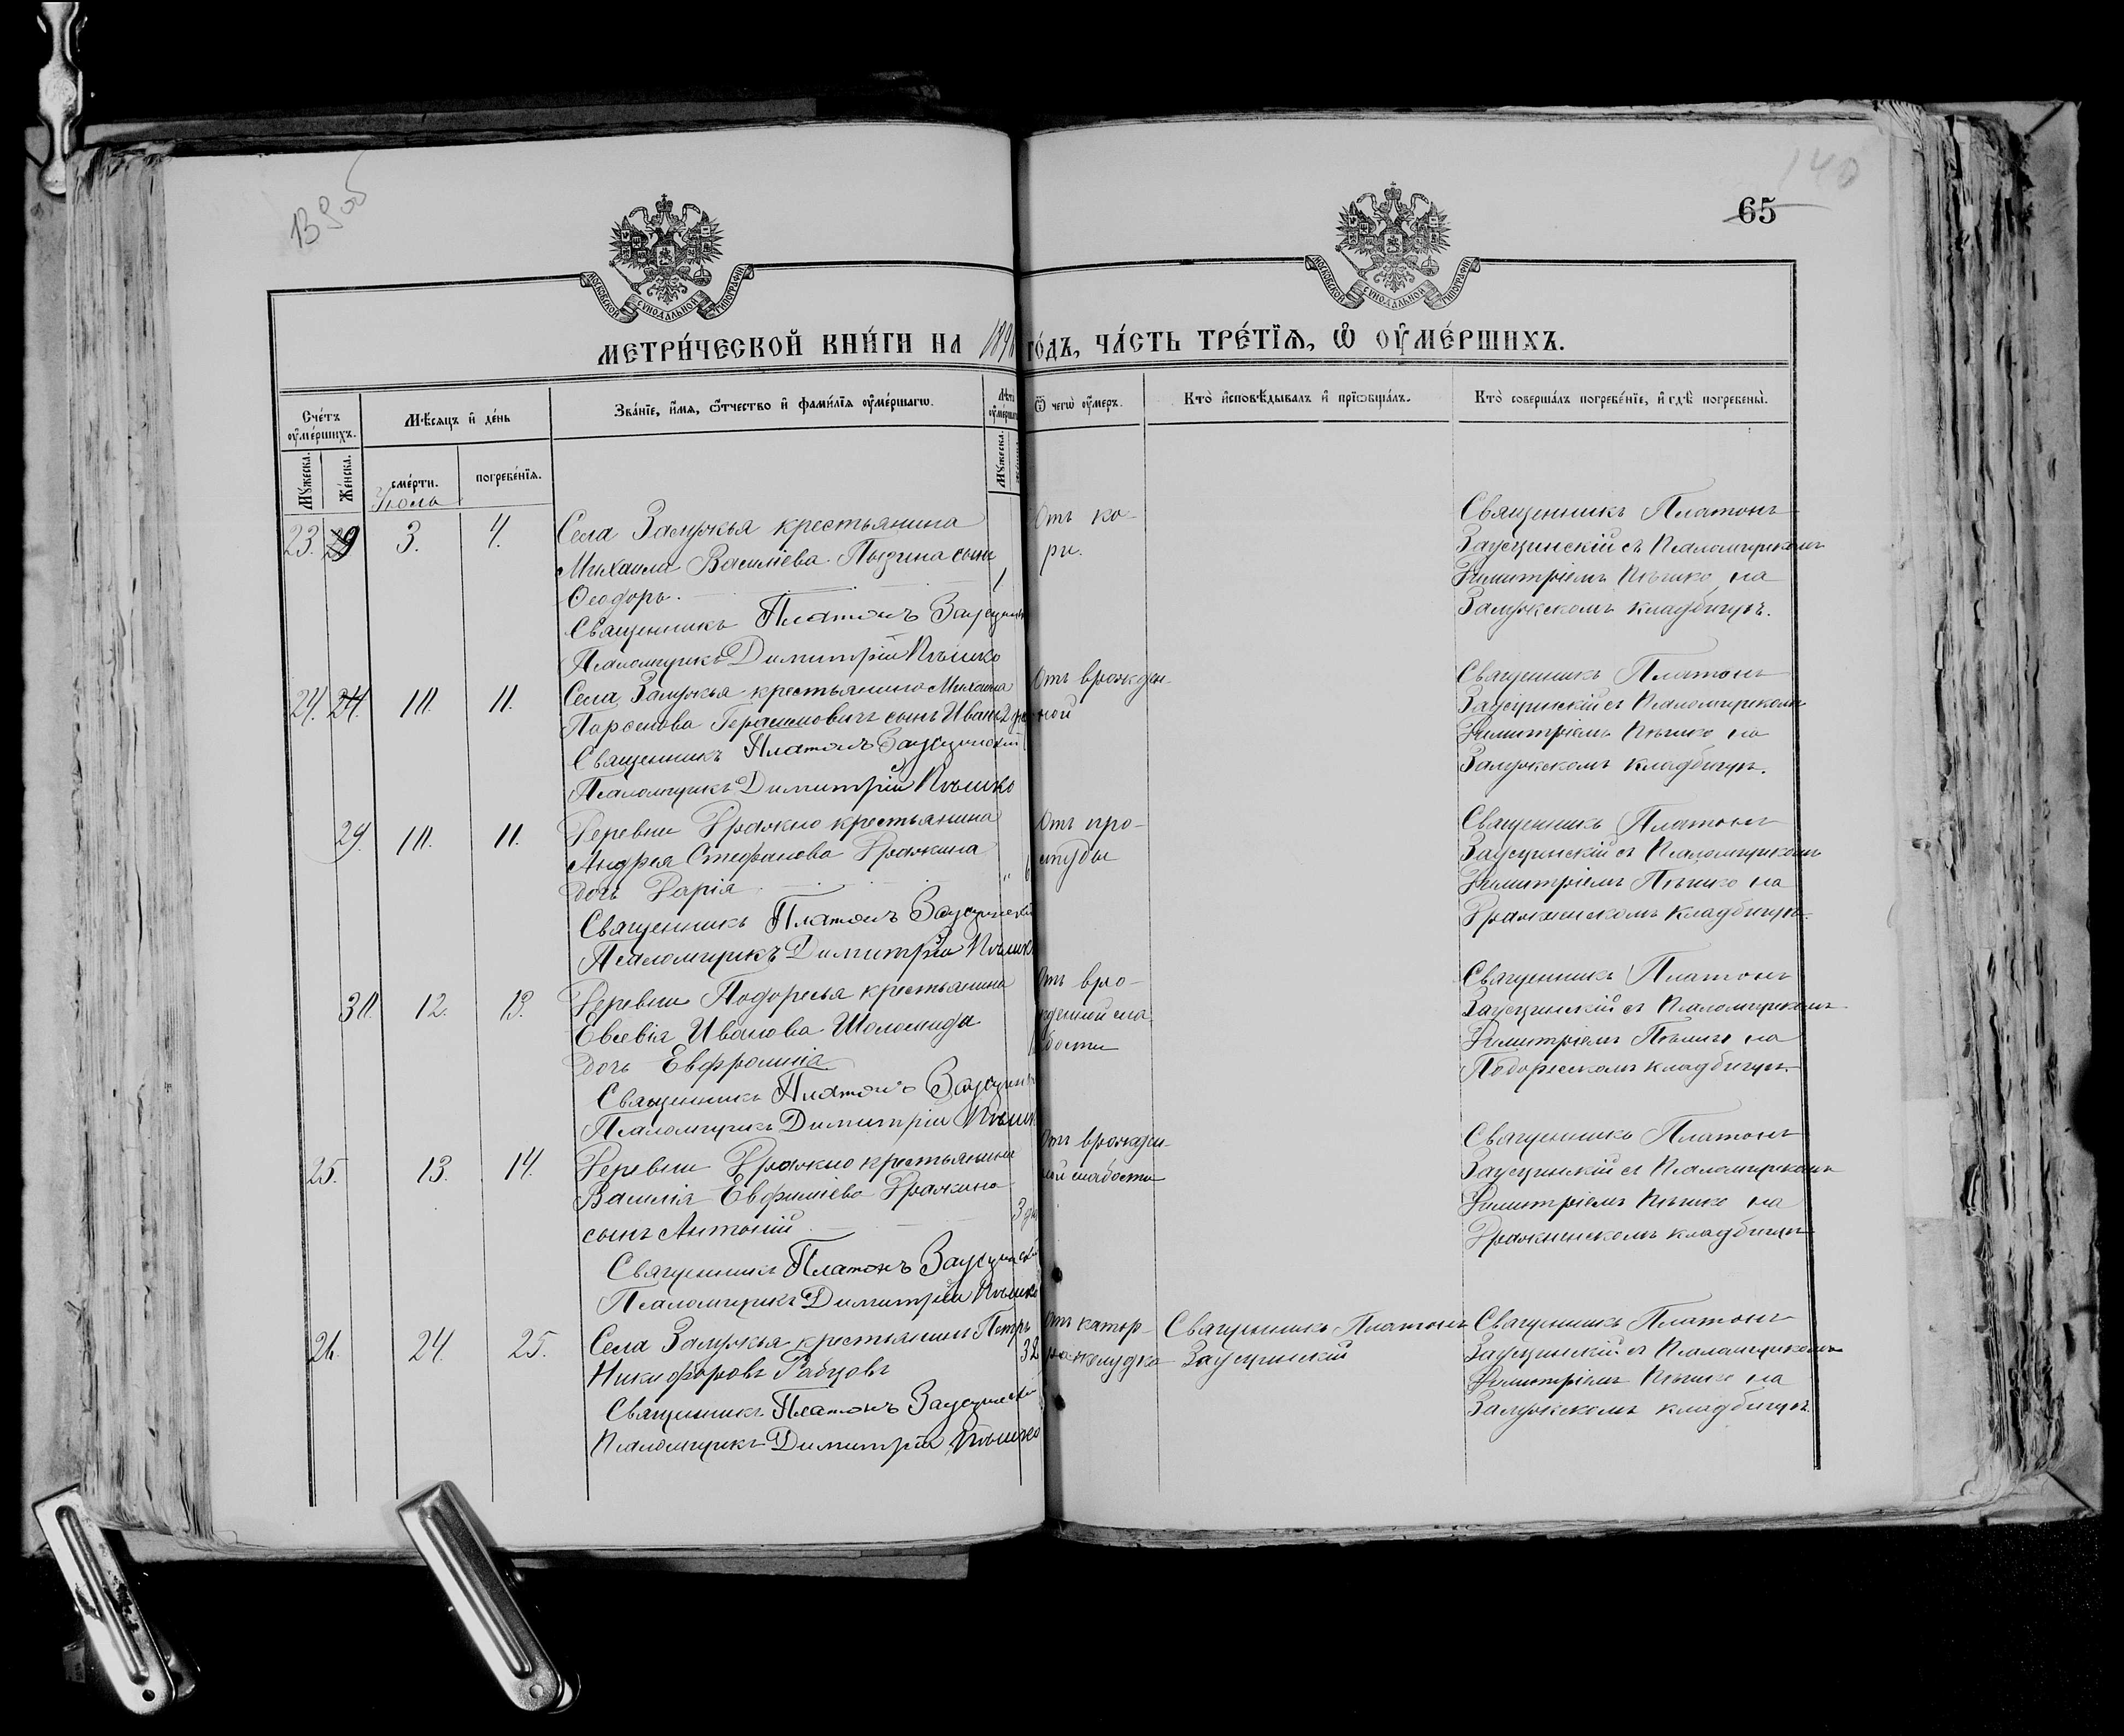 140
65
МОСКОВСКОЙ СѴНОДАЛЬНОЙ ТИПОГРАФІИ
МОСКОВСКОЙ СѴНОДАЛЬНОЙ ТИПОГРАФІИ
МЕТРИ́ЧЕСКОЙ КНИ́ГИ НА 189 ГО́ДЪ, ЧА́СТЬ ТРЕ́ТІѦ, Ѽ ОУ҆МЕ́РШИХЪ.
Сче́тъ оу҆ме́ршихъ.
Мѣ́сяцъ и҆ де́нь
Зва́нїе, и҆́мя, ѻ҆́тчество и҆ фами́лїя оу҆ме́ршагѡ.
Лѣ́та оу҆ме́ршагѡ
Ѿ чегѡ̀ оу҆́меръ.
Кто̀ и҆сповѣ́дывалъ и҆ прїѡбща́лъ.
Кто̀ соверша́лъ погребе́нїе, и҆ гдѣ̀ погребены̀.
Мꙋ́жеска.
Же́нска.
сме́рти.
погребе́нїя.
Мꙋ́жеска.
Іюль
23. 29 3. 4.
Села Залужья крестьянина
Михаила Васильева Пызина сынъ
Ѳеодоръ. 1
Священникъ Платонъ Заусцинскій
Псаломщикъ Димитрій Пѣшко
Отъ ко-
ри.
Священникъ Платонъ
Заусцинскій съ Псаломщикомъ
Димитріемъ Пѣшко на
Залужскомъ кладбищѣ.
24. 24. 10. 11.
Села Залужья крестьянина Михаила
Парѳенова Герасимовичъ сынъ Иванъ 2 дня
Священникъ Платонъ Заусцинскій
Псаломщикъ Димитрій Пѣшко
Отъ врожден-
ной
Священникъ Платонъ
Заусцинскій съ Псаломщикомъ
Димитріемъ Пѣшко на
Залужскомъ кладбищѣ.
29. 10. 11.
Деревни Дражно крестьянина
Андрея Стефанова Дражина
дочь Дарія 6
Священникъ Платонъ Заусцинскій
Псаломщикъ Димитрій Пѣшко
Отъ про-
студы
Священникъ Платонъ
Заусцинскій съ Псаломщикомъ
Димитріемъ Пѣшко на
Дражненскомъ кладбищѣ.
30. 12. 13.
Деревни Подоресья крестьянина
Евсевія Иванова Шоломида
дочь Евфросинія
Священникъ Платонъ Заусцинскій
Псаломщикъ Димитрій Пѣшко
Отъ вро-
жденной сла
бости
Священникъ Платонъ
Заусцинскій съ Псаломщикомъ
Димитріемъ Пѣшко на
Подоресскомъ кладбищѣ.
25. 13. 14.
Деревни Дражно крестьянина
Василія Евфиміева Дражина
сынъ Антоній 3 дня
Священникъ Платонъ Заусцинскій
Псаломщикъ Димитрій Пѣшко
Отъ врожден-
ной слабости
Священникъ Платонъ
Заусцинскій съ Псаломщикомъ
Димитріемъ Пѣшко на
Дражненскомъ кладбищѣ
26. 24. 25.
Села Залужья крестьянинъ Петръ
Никифоровъ Рабцовъ 32
Священникъ Платонъ Заусцинскій
Псаломщикъ Димитрій Пѣшко
Отъ катар-
ра желудка
Священникъ Платонъ
Заусцинскій
Священникъ Платонъ
Заусцинскій съ Псаломщикомъ
Димитріемъ Пѣшко на
Залужскомъ кладбищѣ.